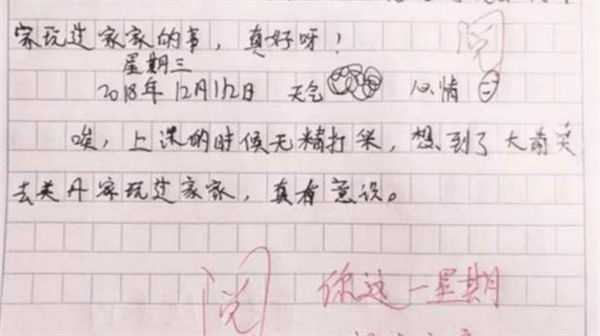 家玩过家家的事，真好呀！
阅
星期三
2018年12月12日 天气 心情
唉，上课的时候无精打采，想到了大前天
去美丹家玩过家家，真有意识。
阅
你这一星期